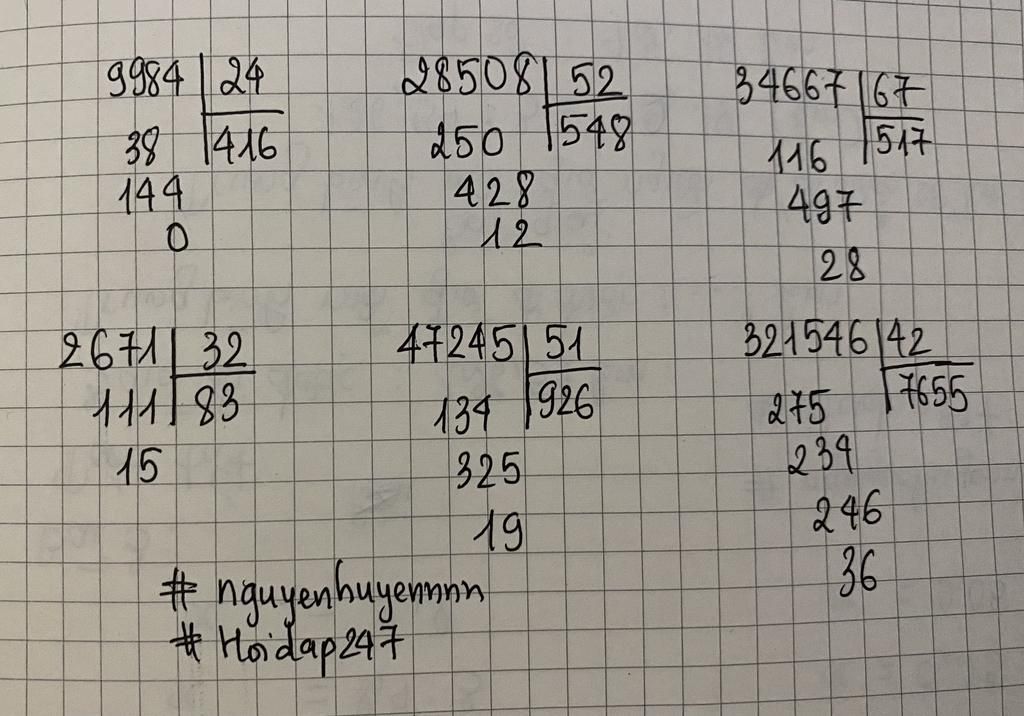 9984 24
38 416
144
0
28508 52
250 548
428
12
34667 67
116 517
497
28
2671 32
111 83
15
47245 51
134 926
325
19
321546 42
275 7655
234
246
36
# nguyenhuyennnn
# Hoidap247